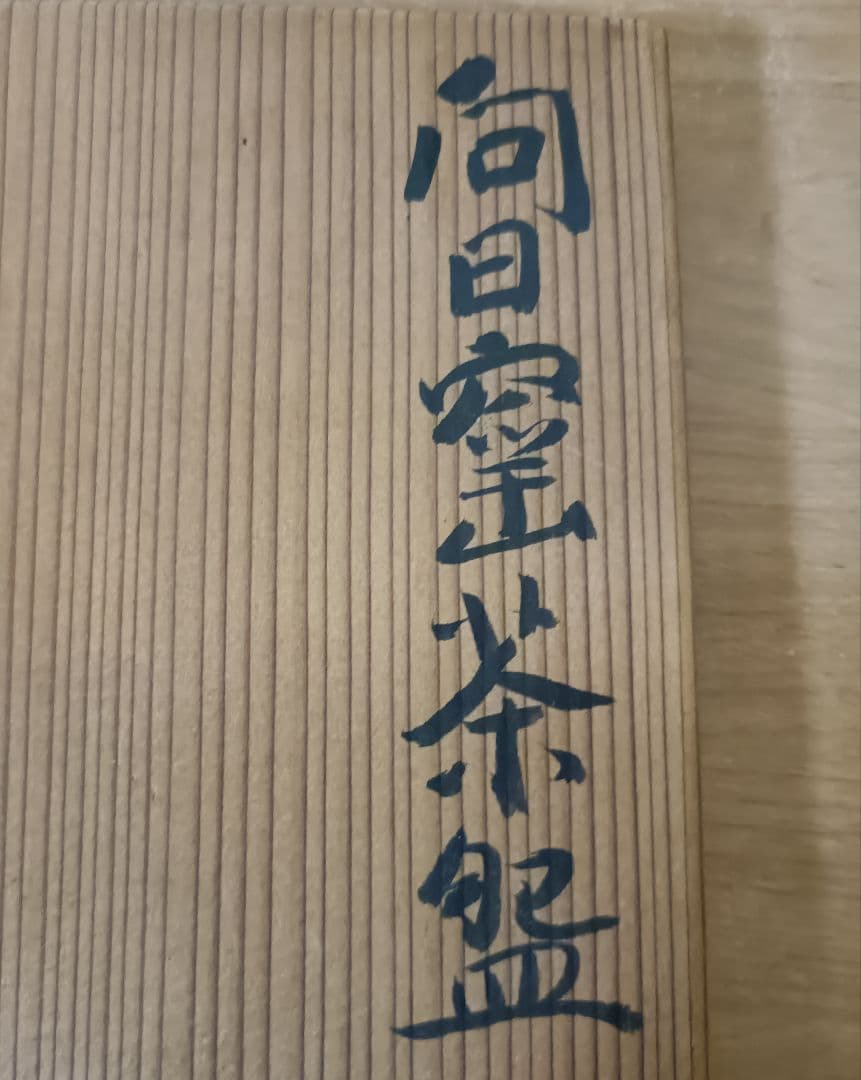 向日窑茶盌